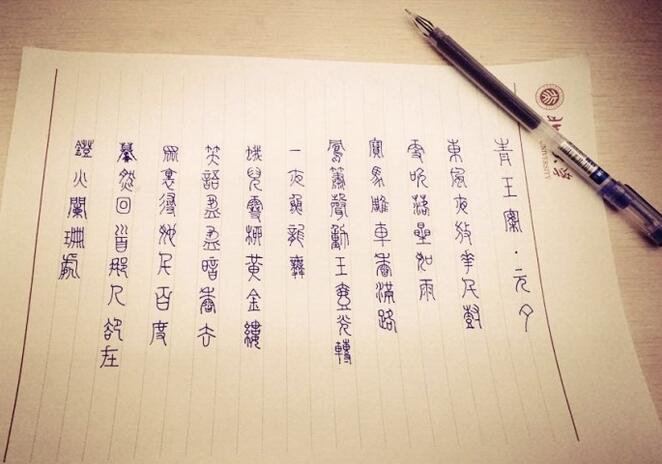 青玉案·元夕
東風夜放華千樹
更吹落星如雨
寶馬雕車香滿路
鳳簫聲動玉壺光轉
一夜魚龍舞
蛾兒雪柳黃金縷
笑語盈盈暗香去
眾裏尋他千百度
驀然回首那人卻在
鐙火闌珊處
UNIVERSITY